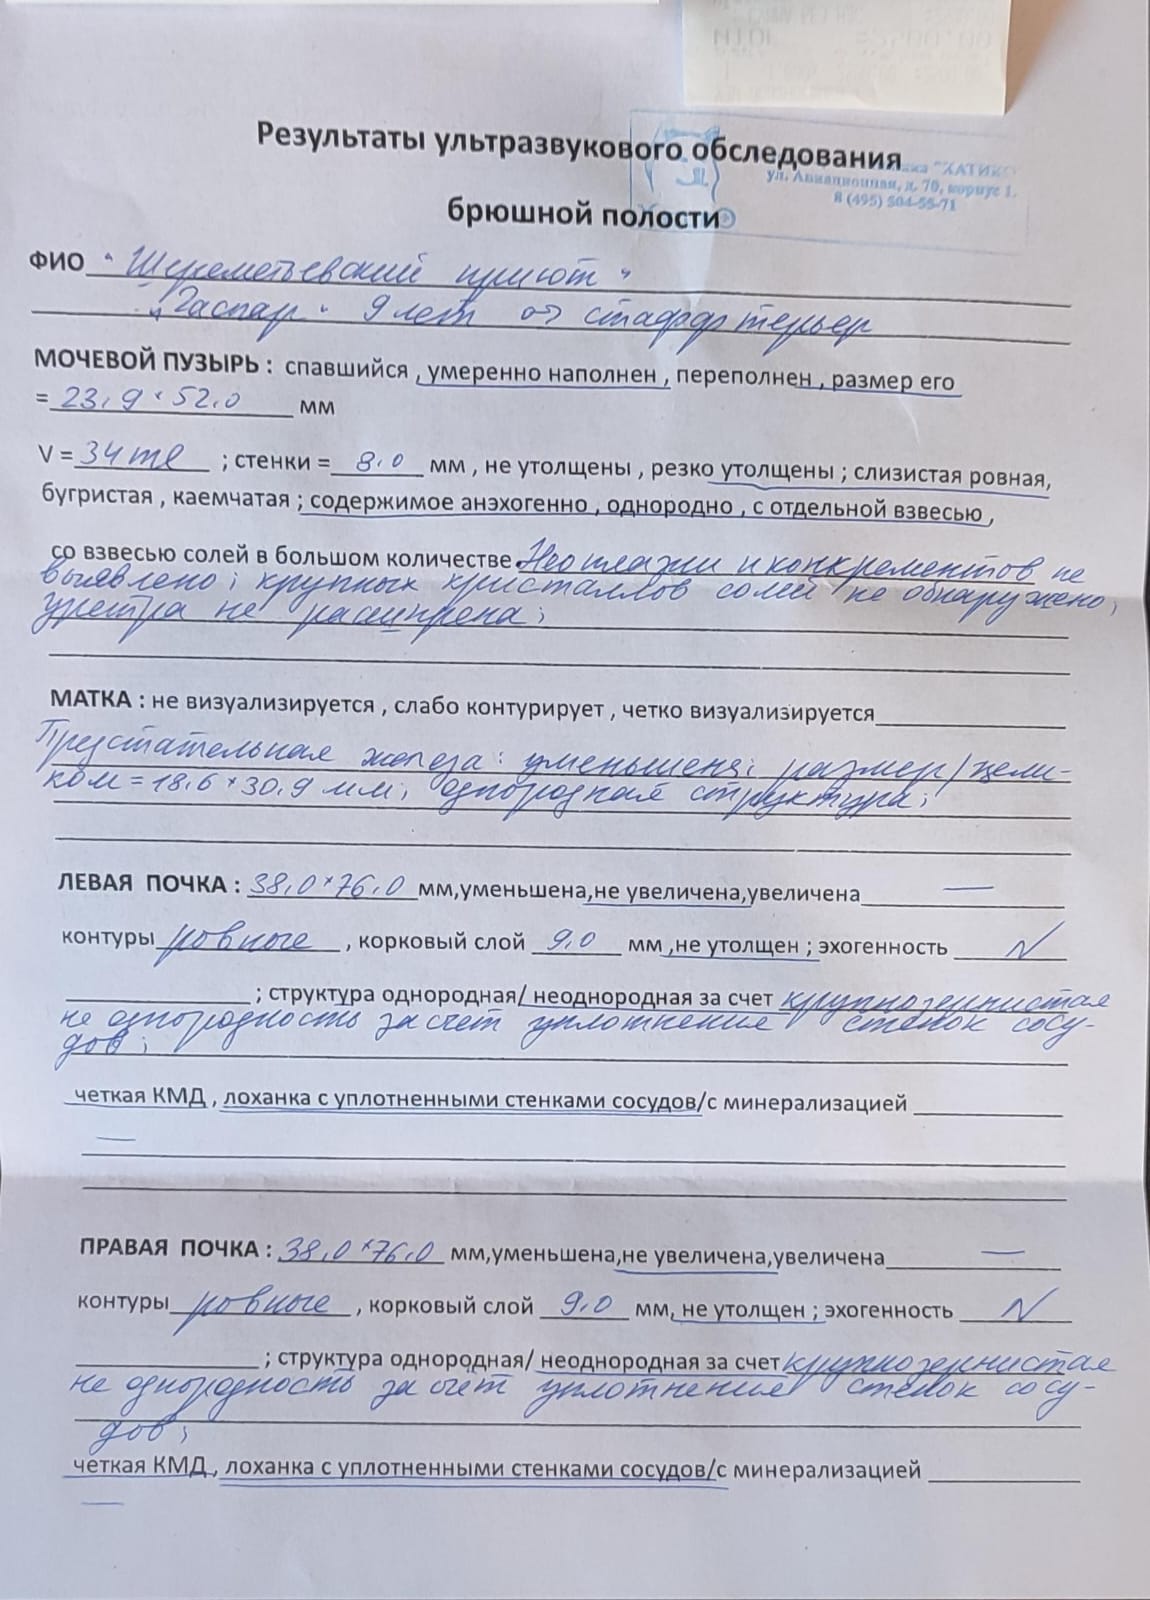 Результаты ультразвукового обследования
"ХАТИКО
ул. Авиационная, д. 70, корпус 1.
8 (495) 504-55-71
брюшной полости
ФИО "Шереметьевский приют"
"Гаспар" 9 лет стафф терьер
МОЧЕВОЙ ПУЗЫРЬ : спавшийся , умеренно наполнен , переполнен , размер его
= 23,9 × 52,0 мм
V = 34 ml ; стенки = 8,0 мм , не утолщены , резко утолщены ; слизистая ровная,
бугристая , каемчатая ; содержимое анэхогенно , однородно , с отдельной взвесью ,
со взвесью солей в большом количестве Неоплазии и конкрементов не
выявлено; крупных кристаллов солей не обнаружено;
уретра не расширена;
МАТКА : не визуализируется , слабо контурирует , четко визуализируется
Предстательная железа: уменьшена; размер/цели-
ком = 18,6 × 30,9 мм; однородная структура;
ЛЕВАЯ ПОЧКА : 38,0 × 76,0 мм,уменьшена,не увеличена,увеличена —
контуры ровные , корковый слой 9,0 мм ,не утолщен ; эхогенность N
; структура однородная/ неоднородная за счет крупнозернистая
не однородность за счет уплотнения стенок сосу-
дов;
четкая КМД , лоханка с уплотненными стенками сосудов/с минерализацией
—
ПРАВАЯ ПОЧКА : 38,0 × 76,0 мм,уменьшена,не увеличена,увеличена —
контуры ровные , корковый слой 9,0 мм, не утолщен ; эхогенность N
; структура однородная/ неоднородная за счет крупнозернистая
не однородность за счёт уплотнения стенок сосу-
дов;
четкая КМД , лоханка с уплотненными стенками сосудов/с минерализацией
—